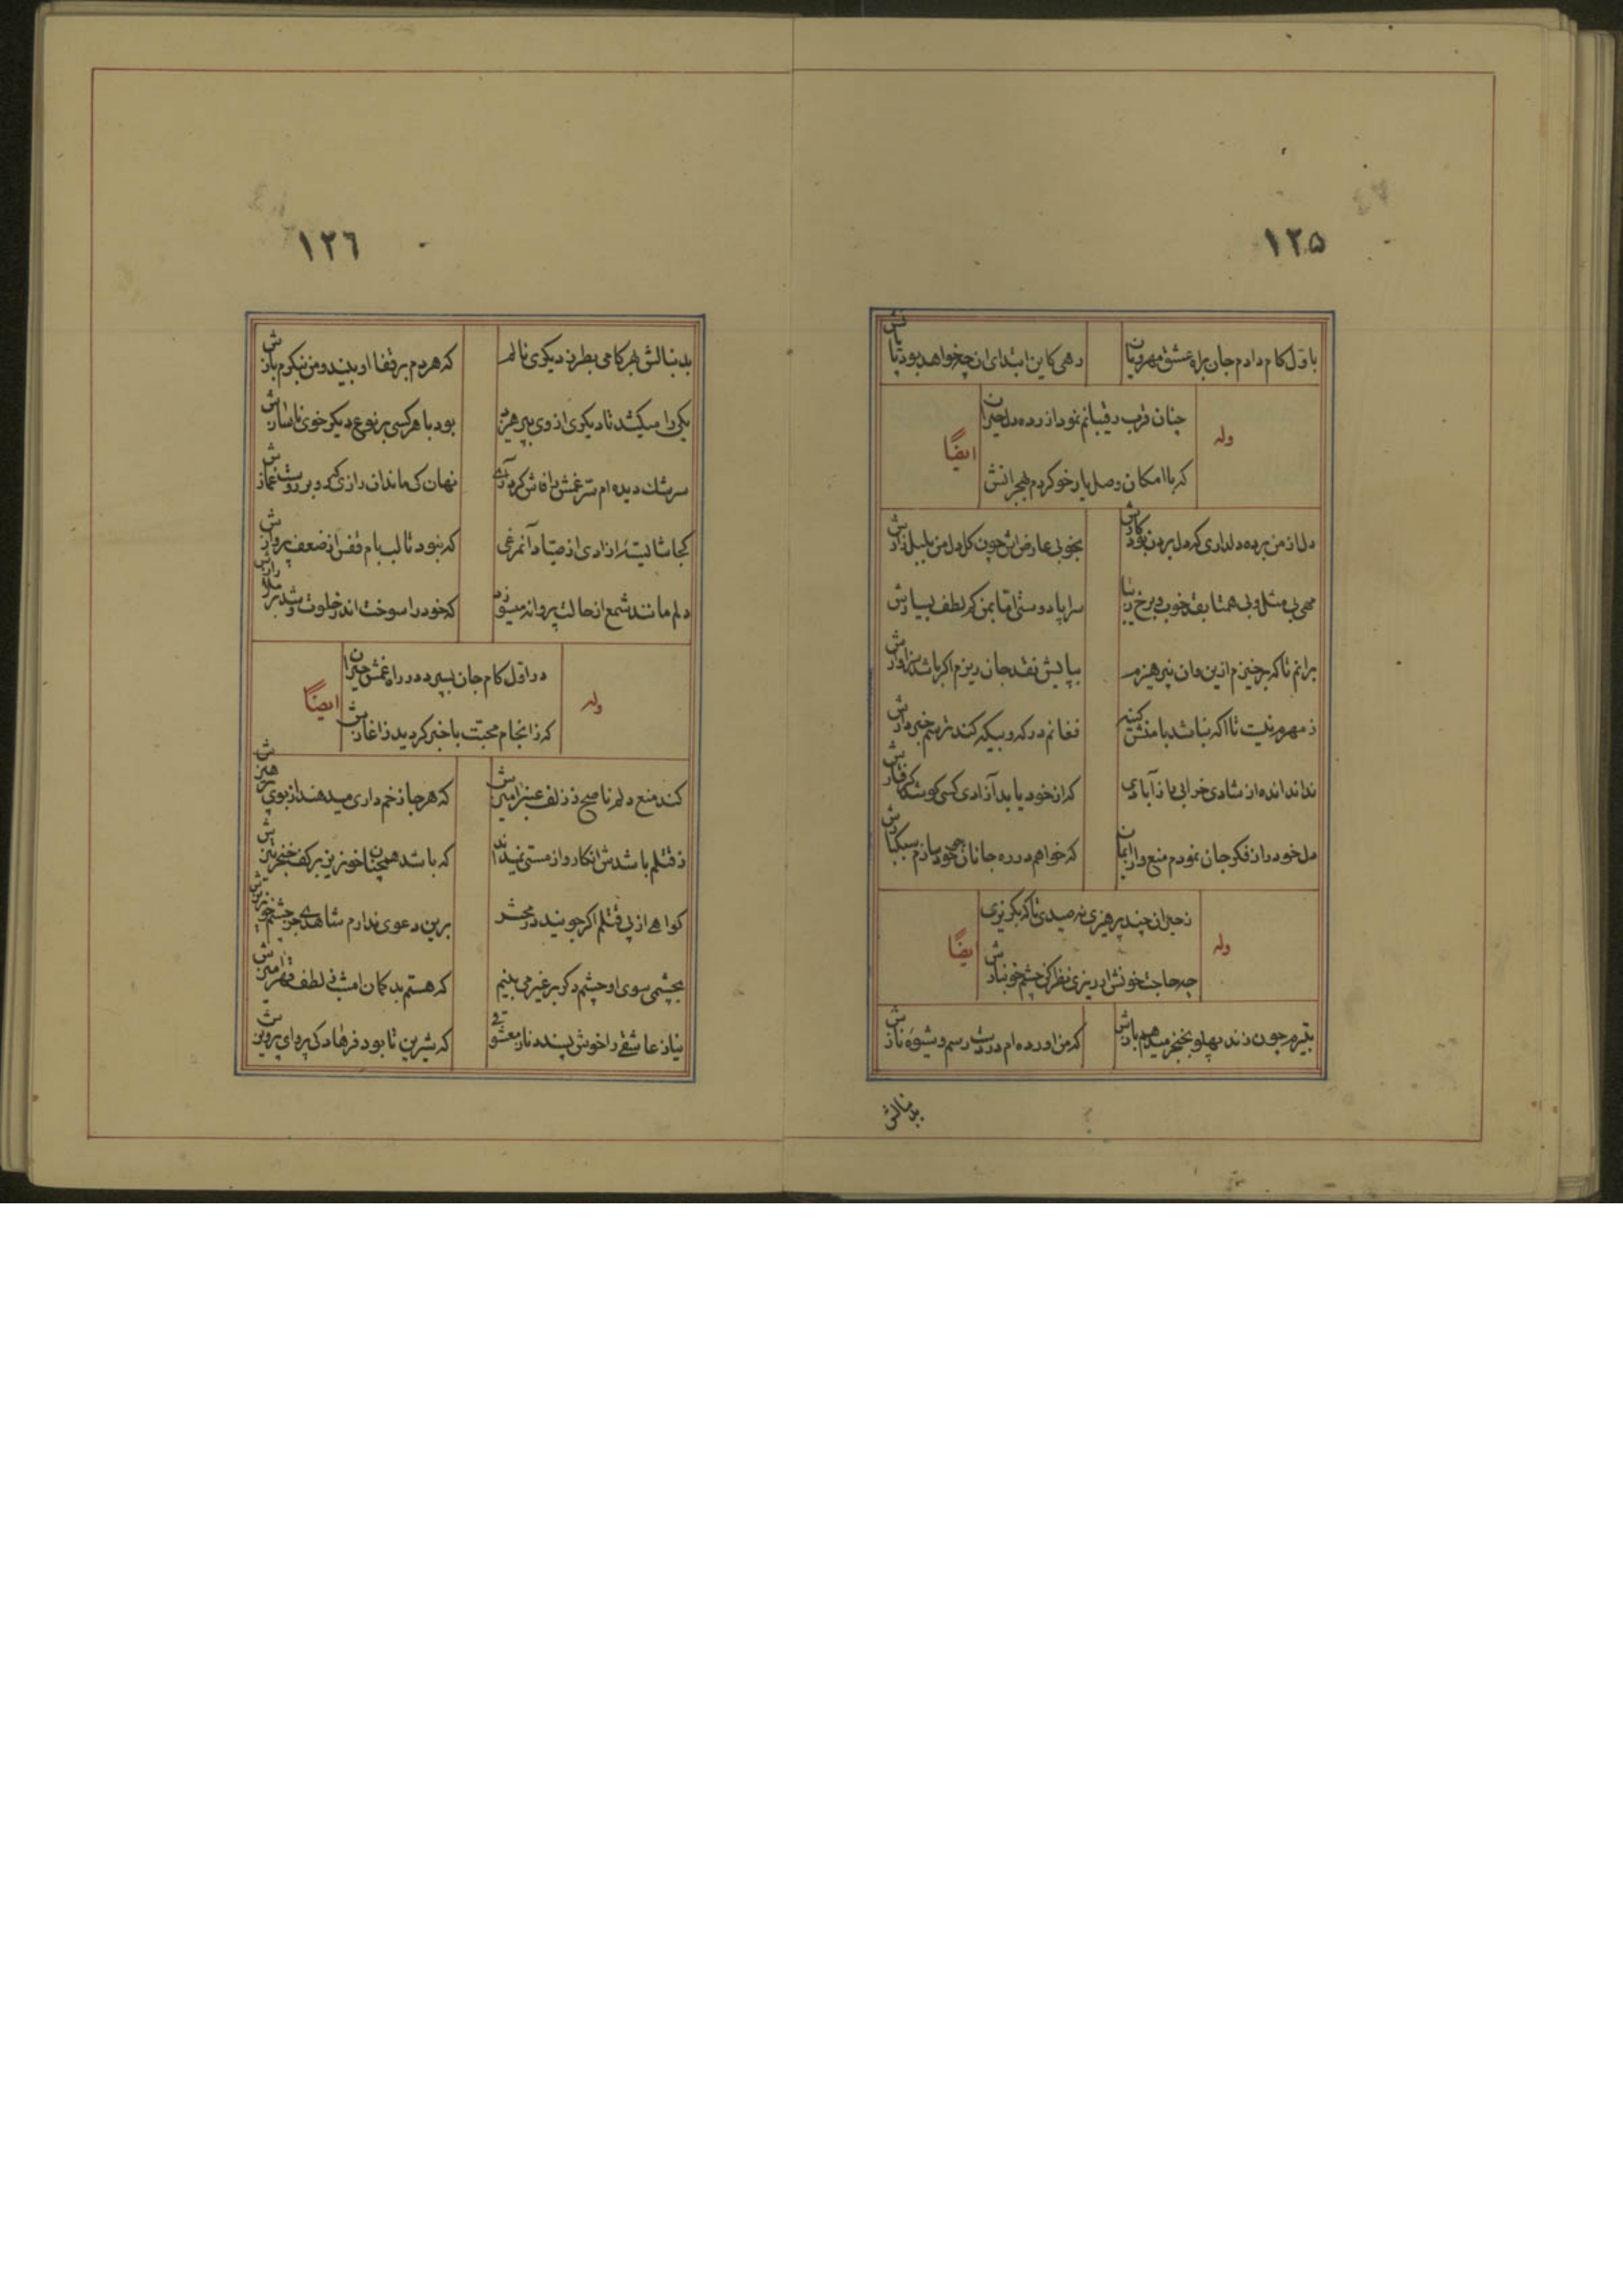 ١٢٥
باول کام دادم جان براه عشق مهرویان
رهی کاین ابتدای ان چخواهد بود پایانش
چنان قرب رقیبانم نمود ازرده دل حیران
وله
ایضاً
که با امکان وصل یار خو کردم بهجرانش
دل از من برده دلداری که دل بردن بود کارش
بخوبی عارضش چون کل دل من بلبل زارش
مهی بی مثل و بی همتا بقد خوب و برخ زیبا
سراپا دوستی اما بمن کم لطف بسیارش
برانم تا که برخیزم ازین وان نپرهیزم
بپایش نقد جان ریزم اکر باشد سزاوارش
ز مهرم نیست تا اکه نباشد با منش کینه
فغانم در که و بیکه کند ترسم خبردارش
نداند انده از شادی خرابی باز آبادی
که از خود یابد آزادی کسی کو شد کرفتارش
دل خود را ز فکر جان نمودم منع و از ایمان
که خواهم در ره جانان چو خود سازم سبکبارش
ز حیران چند پرهیزی نه صیدی تا که بکریزی
وله
ایضاً
چه حاجت خونش ار ریزی نظر کن چشم خونبارش
بتیرم چون زند پهلو بخنجر میدهم بازش
که من اورده ام در دست رسم و شیوه نازش
بدنبالش
١٢٦
بدنبالش بهر کامی بطرز دیکری نالم
که هر دم بر قفا او بیند و من ننکرم بازش
یکی را میکشد تا دیکری از وی بپرهیزد
بود با هر کسی بر نوع دیکر خوی ناسازش
سرشک دیده ام سر غمش را فاش کرد آری
نهان کی ماند ان رازی که دوبروست غمازش
کجا شایسته ازادی از صیاد آنمرغی
که نبود تا لب بام قفس از ضعف پروازش
دلم مانند شمع از حالت پروانه میسوزد
که خود را سوخت اندر خلوت و شد برملا رازش
در اول کام جان بسپرد در راه غمش حیران
وله
ایضاً
که ز انجام محبت باخبر کردید ز اغازش
کند منع دلم ناصح ز زلف عنبرامیزش
که هر جا زخم داری میدهند از بوی پرهیزش
ز قتلم باشدش انکار و از مستی نمیداند
که باشد همچنان خونریز بر کف خنجر تیزش
کواهی از پی قتلم اکر جویند در محشر
برین دعوی ندارم شاهدی جز چشم خونریزش
بچشمی سوی او چشم دکر بر غیر می بینم
که هستم بدکمان امشب ز لطف قهرامیزش
نیاز عاشقی را خوش پسندد ناز معشوقی
که شیرین تا بود فرهاد کی پروای پرویزش